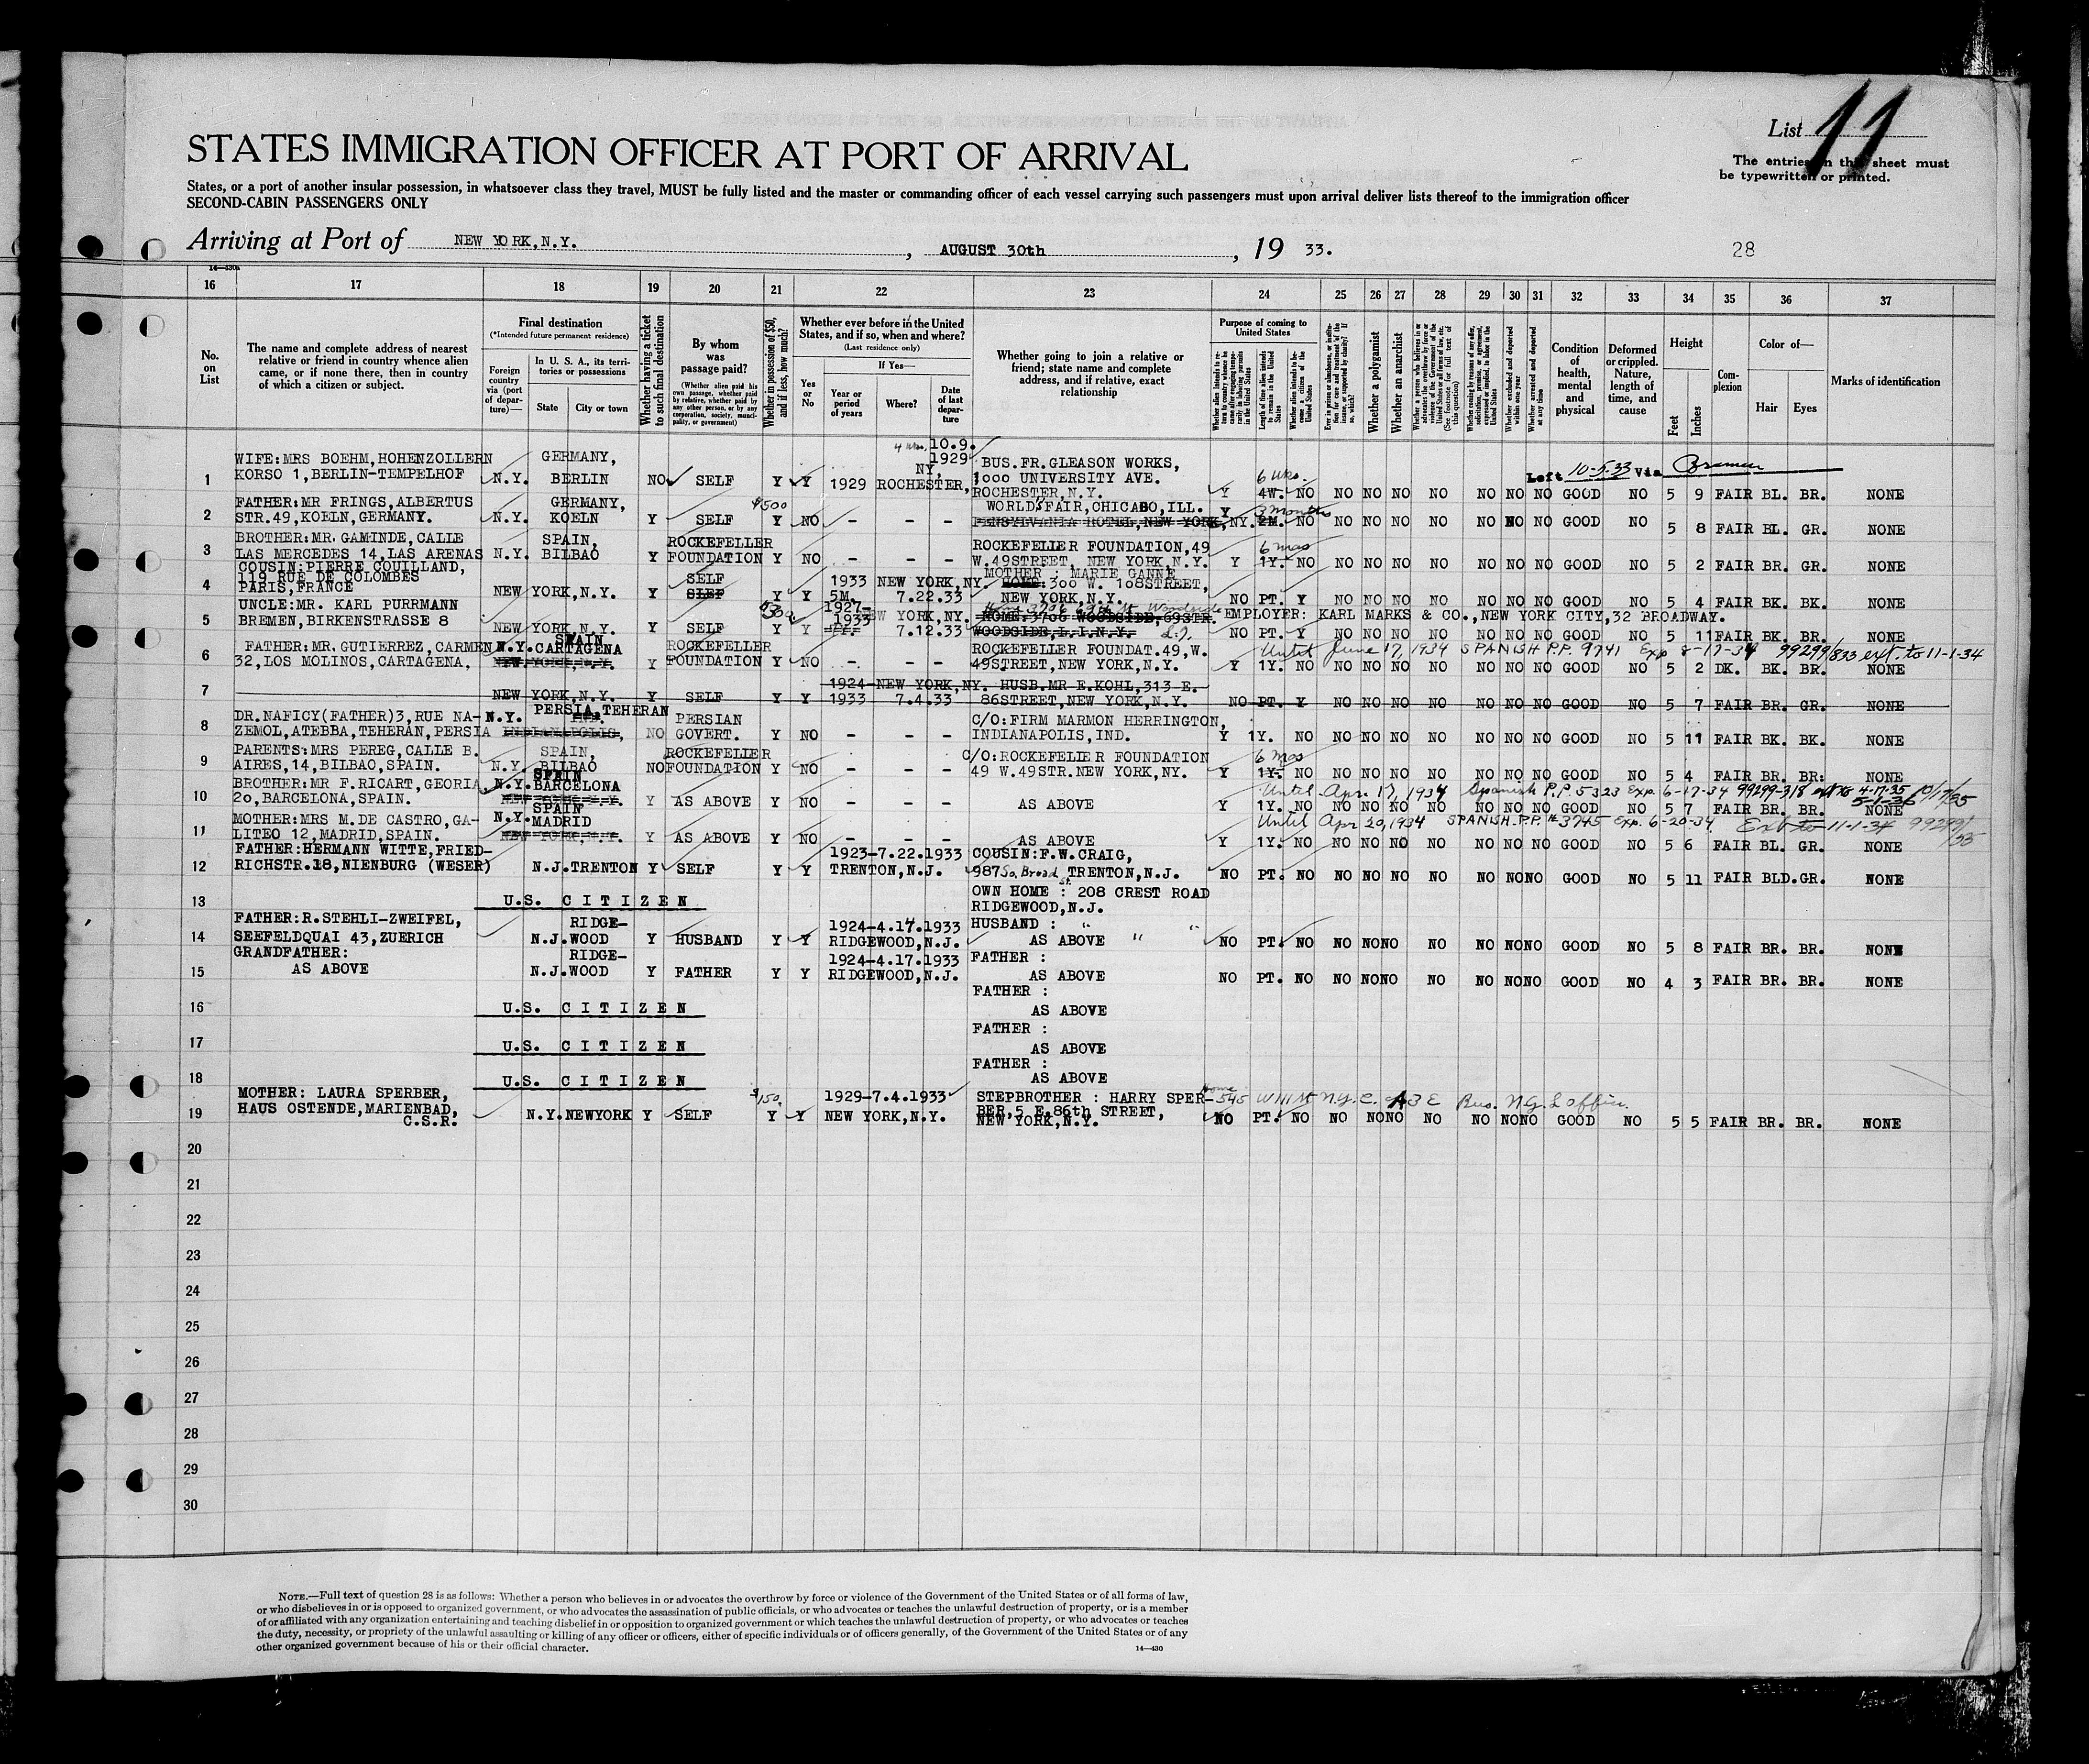 List 11
STATES IMMIGRATION OFFICER AT PORT OF ARRIVAL
The entries on this sheet must
be typewritten or printed.
States, or a port of another insular possession, in whatsoever class they travel, MUST be fully listed and the master or commanding officer of each vessel carrying such passengers must upon arrival deliver lists thereof to the immigration officer
SECOND-CABIN PASSENGERS ONLY
Arriving at Port of NEW YORK, N.Y. , AUGUST 30th , 19 33.
28
14—430a
16 17 18 19 20 21 22 23 24 25 26 27 28 29 30 31 32 33 34 35 36 37
No. on List
The name and complete address of nearest relative or friend in country whence alien came, or if none there, then in country of which a citizen or subject.
Final destination
(*Intended future permanent residence)
Foreign country via (port of departure)—
In U. S. A., its territories or possessions
State City or town
Whether having a ticket to such final destination
By whom was passage paid?
(Whether alien paid his own passage, whether paid by relative, whether paid by any other person, or by any corporation, society, municipality, or government)
Whether in possession of $50, and if less, how much?
Whether ever before in the United States, and if so, when and where?
(Last residence only)
Yes or No
If Yes—
Year or period of years
Where?
Date of last departure
Whether going to join a relative or friend; state name and complete address, and if relative, exact relationship
Purpose of coming to United States
Length of time alien intends to remain in the United States
Whether alien intends to become a citizen of the United States
Whether a polygamist
Whether an anarchist
Whether excluded and deported within one year
Whether arrested and deported at any time
Condition of health, mental and physical
Deformed or crippled. Nature, length of time, and cause
Height
Feet Inches
Complexion
Color of—
Hair Eyes
Marks of identification
4 wks. 10.9.
WIFE:MRS BOEHM,HOHENZOLLERN GERMANY, 1929 BUS.FR.GLEASON WORKS, Left 10-5-33 Via Bremen
KORSO 1,BERLIN-TEMPELHOF NY, 1000 UNIVERSITY AVE. 6 wks.
1 N.Y. BERLIN NO SELF Y Y 1929 ROCHESTER, ROCHESTER,N.Y. Y 4W. NO NO NO NO NO NO NO NO GOOD NO 5 9 FAIR BL. BR. NONE
FATHER:MR FRINGS,ALBERTUS GERMANY, $500 WORLDS FAIR,CHICAGO,ILL. 3 months
2 STR.49,KOELN,GERMANY. N.Y. KOELN Y SELF Y NO - - - PENSYLVANIA HOTEL,NEW YORK,NY. Y 2M. NO NO NO NO NO NO NO NO GOOD NO 5 8 FAIR BL. GR. NONE
BROTHER:MR. GAMINDE, CALLE SPAIN, ROCKEFELLER ROCKEFELLER FOUNDATION,49 6 mos
3 LAS MERCEDES 14,LAS ARENAS N.Y. BILBAO Y FOUNDATION Y NO - - - W.49STREET, NEW YORK,N.Y. Y 1Y. NO NO NO NO NO NO NO NO GOOD NO 5 2 FAIR BR. GR. NONE
COUSIN:PIERRE COUILLAND, MOTHER : MARIE GANNE
119 RUE DE COLOMBES SELF 1933 NEW YORK,NY. HOME:300 W. 108STREET,
4 PARIS,FRANCE NEW YORK,N.Y. Y SLEF Y Y 5M. 7.22.33 NEW YORK,N.Y. NO PT. Y NO NO NO NO NO NO NO GOOD NO 5 4 FAIR BK. BK. NONE
UNCLE:MR. KARL PURRMANN 1927- NEW YORK,NY. HOME,3706 WOODSIDE,69STR. EMPLOYER: KARL MARKS & CO.,NEW YORK CITY,32 BROADWAY.
5 BREMEN,BIRKENSTRASSE 8 NEW YORK,N.Y. Y SELF Y Y 1933 7.12.33 WOODSIDE,L.I.N.Y. L.I. NO PT. Y NO NO NO NO NO NO NO GOOD NO 5 11 FAIR BK. BR. NONE
FATHER:MR. GUTIERREZ,CARMEN N.Y. SPAIN CARTAGENA ROCKEFELLER ROCKEFELLER FOUNDAT.49,W. Until June 17, 1934 SPANISH P.P. 9741 Exp 8-17-34 99299/833 ext. to 11-1-34
6 32,LOS MOLINOS,CARTAGENA, NEW YORK,N.Y. Y FOUNDATION Y NO - - - 49STREET,NEW YORK,N.Y. Y 1Y. NO NO NO NO NO NO NO NO GOOD NO 5 2 DK. BK. BR. NONE
1924-NEW YORK,NY. HUSB.MR E.KOHL,313 E.
7 NEW YORK,N.Y. Y SELF Y Y 1933 7.4.33 86STREET,NEW YORK,N.Y. NO PT. Y NO NO NO NO NO NO NO GOOD NO 5 7 FAIR BR. GR. NONE
DR.NAFICY(FATHER)3,RUE NA- N.Y. PERSIA,TEHERAN PERSIAN C/O:FIRM MARMON HERRINGTON,
8 ZEMOL,ATEBBA,TEHERAN,PERSIA INDIANAPOLIS, IND. NO GOVERT. Y NO - - - INDIANAPOLIS,IND. Y 1Y. NO NO NO NO NO NO NO NO GOOD NO 5 11 FAIR BK. BK. NONE
PARENTS:MRS PEREG,CALLE B. SPAIN, ROCKEFELLER C/O:ROCKEFELLER FOUNDATION 6 mos
9 AIRES,14,BILBAO,SPAIN. N.Y. BILBAO NO FOUNDATION Y NO - - - 49 W.49STR.NEW YORK,NY. Y 1Y. NO NO NO NO NO NO NO NO GOOD NO 5 4 FAIR BR. BR. NONE
BROTHER:MR F.RICART,GEORIA N.Y. SPAIN BARCELONA Until Apr. 17, 1934 Spanish P.P. 5323 Exp. 6-17-34 99299-318 ext to 4-17-35
10 20,BARCELONA,SPAIN. NEW YORK,N.Y. Y AS ABOVE Y NO - - - AS ABOVE Y 1Y. NO NO NO NO NO NO NO NO GOOD NO 5 7 FAIR BR. BR. NONE
MOTHER:MRS M.DE CASTRO,GA- N.Y. SPAIN MADRID Until Apr 20, 1934 SPANISH P.P. # 3745 Exp. 6-20-34 Ext to 11-1-34
11 LITEO 12,MADRID,SPAIN. NEW YORK,N.Y. Y AS ABOVE Y NO - - - AS ABOVE Y 1Y. NO NO NO NO NO NO NO NO GOOD NO 5 6 FAIR BL. GR. NONE
FATHER:HERMANN WITTE,FRIED- 1923-7.22.1933 COUSIN:F.W.CRAIG,
12 RICHSTR.18,NIENBURG (WESER) N.J.TRENTON Y SELF Y Y TRENTON,N.J. 987 So. Broad St. TRENTON,N.J. NO PT. NO NO NO NO NO NO NONO GOOD NO 5 11 FAIR BLD.GR. NONE
OWN HOME : 208 CREST ROAD
13 U.S. CITIZEN RIDGEWOOD,N.J.
FATHER:R.STEHLI-ZWEIFEL, RIDGE- 1924-4.17.1933 HUSBAND : "
14 SEEFELDQUAI 43,ZUERICH N.J.WOOD Y HUSBAND Y Y RIDGEWOOD,N.J. AS ABOVE " NO PT. NO NO NONO NO NO NONO GOOD NO 5 8 FAIR BR. BR. NONE
GRANDFATHER: RIDGE- 1924-4.17.1933 FATHER :
15 AS ABOVE N.J.WOOD Y FATHER Y Y RIDGEWOOD,N.J. AS ABOVE NO PT. NO NO NONO NO NO NONO GOOD NO 4 3 FAIR BR. BR. NONE
FATHER :
16 U.S. CITIZEN AS ABOVE
FATHER :
17 U.S. CITIZEN AS ABOVE
FATHER :
18 U.S. CITIZEN AS ABOVE
MOTHER: LAURA SPERBER, $150. 1929-7.4.1933 STEPBROTHER : HARRY SPER- Home 545 W 111 St N.Y.C. A3E Bus. N.G.L office.
19 HAUS OSTENDE,MARIENBAD, N.Y.NEWYORK Y SELF Y Y NEW YORK,N.Y. BER,5 E.86th STREET,
C.S.R. NEW YORK,N.Y. NO PT. NO NO NONO NO NO NONO GOOD NO 5 5 FAIR BR. BR. NONE
20
21
22
23
24
25
26
27
28
29
30
NOTE.—Full text of question 28 is as follows: Whether a person who believes in or advocates the overthrow by force or violence of the Government of the United States or of all forms of law,
or who disbelieves in or is opposed to organized government, or who advocates the assassination of public officials, or who advocates or teaches the unlawful destruction of property, or is a member
of or affiliated with any organization entertaining and teaching disbelief in or opposition to organized government or which teaches the unlawful destruction of property, or who advocates or teaches
the duty, necessity, or propriety of the unlawful assaulting or killing of any officer or officers, either of specific individuals or of officers generally, of the Government of the United States or of any
other organized government because of his or their official character.
14—430